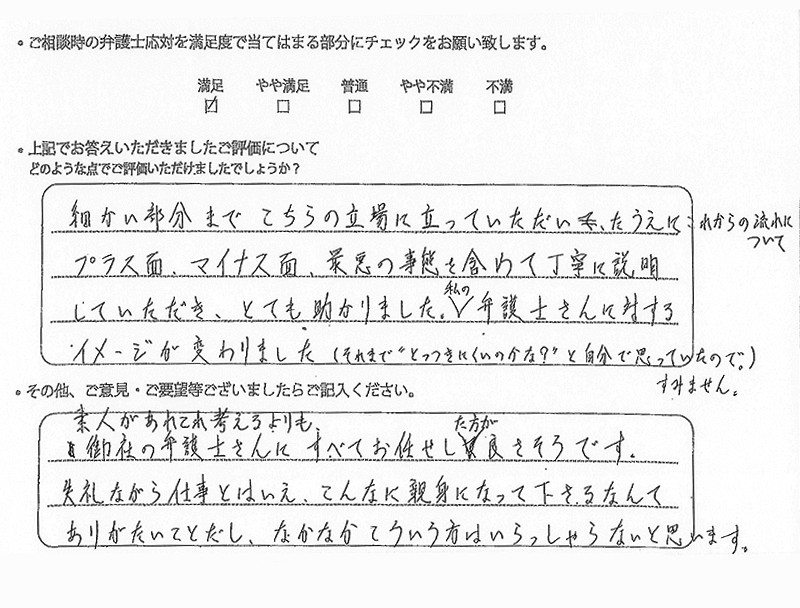 。ご相談時の弁護士応対を満足度で当てはまる部分にチェックをお願い致します。
満足 やや満足 普通 やや不満 不満
☑ □ □ □ □
。上記でお答えいただきましたご評価について
どのような点でご評価いただけましたでしょうか？
細かい部分まで こちらの立場に立っていただいた、たうえに これからの流れに
ついて
プラス面、マイナス面、最悪の事態を含めて丁寧に説明
していただき、とても助かりました。私の弁護士さんに対する
イメージが変わりました（それまで“とっつきにくいのかな？”と自分で思っていたので。）
すみません。
。その他、ご意見・ご要望等ございましたらご記入ください。
素人があれこれ考えるよりも、
御社の弁護士さんに すべてお任せした方が良さそうです。
失礼ながら仕事とはいえ、こんなに親身になって下さるなんて
ありがたいことだし、なかなかこういう方はいらっしゃらないと思います。